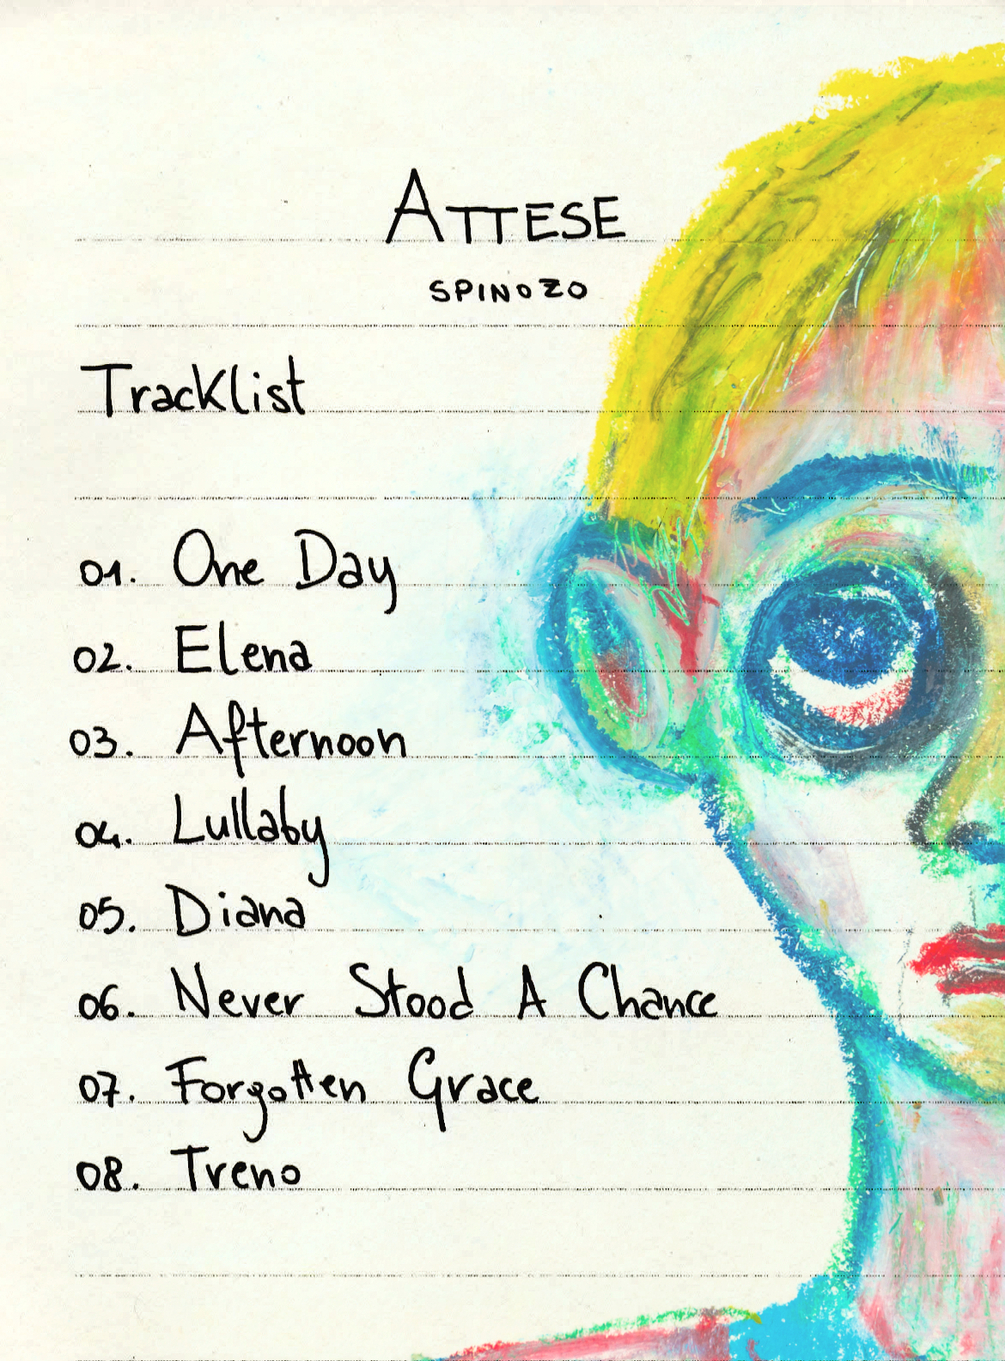 ATTESE
SPINOZO
Tracklist
01. One Day
02. Elena
03. Afternoon
04. Lullaby
05. Diana
06. Never Stood A Chance
07. Forgotten Grace
08. Treno